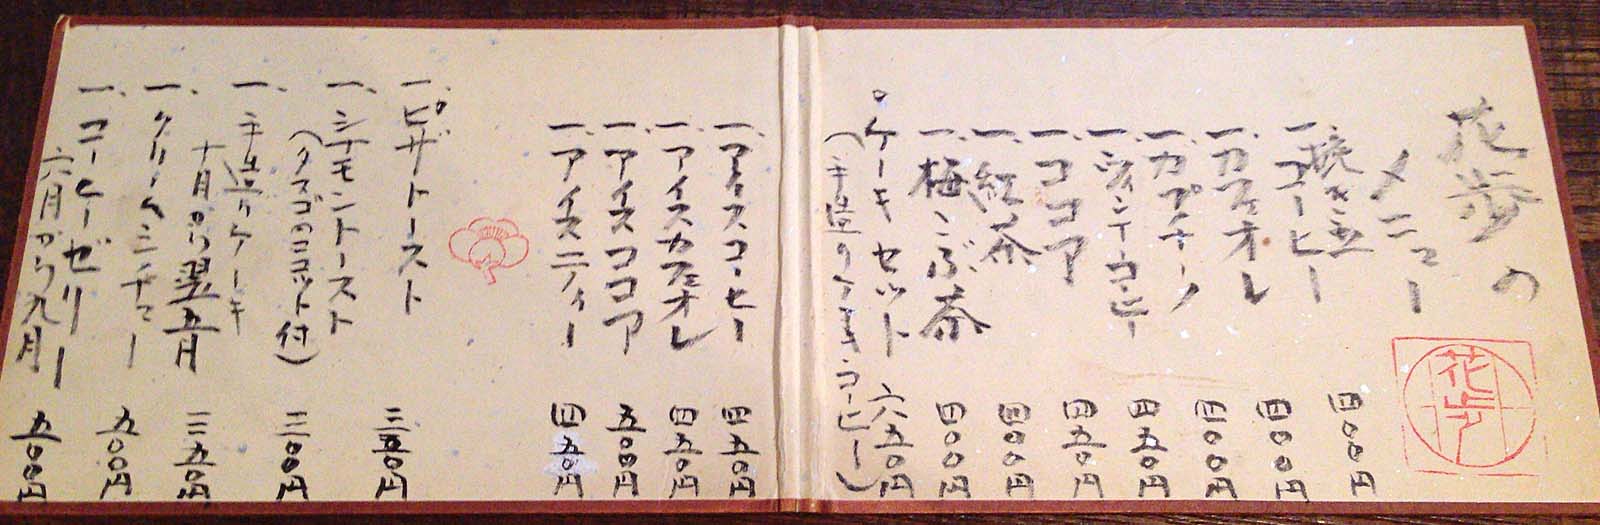 花歩の
メニュー
花歩
挽き立
一、コーヒー 四〇〇円
一、カフェオレ 四〇〇円
一、カプチーノ 四〇〇円
一、ウィンナーコーヒー 四五〇円
一、ココア 四五〇円
一、紅茶 四〇〇円
一、梅こぶ茶 四〇〇円
○ケーキセット 六五〇円
(手造りケーキ、コーヒー)
一、アイスコーヒー 四五〇円
一、アイスカフェオレ 四五〇円
一、アイスココア 五〇〇円
一、アイスティー 四五〇円
一、ピザトースト 三五〇円
一、シナモントースト 三〇〇円
(タマゴのココット付)
一、手造りケーキ 三五〇円
十月から翌五月
一、クリームシチュー 五〇〇円
一、コーヒーゼリー 五〇〇円
六月から九月